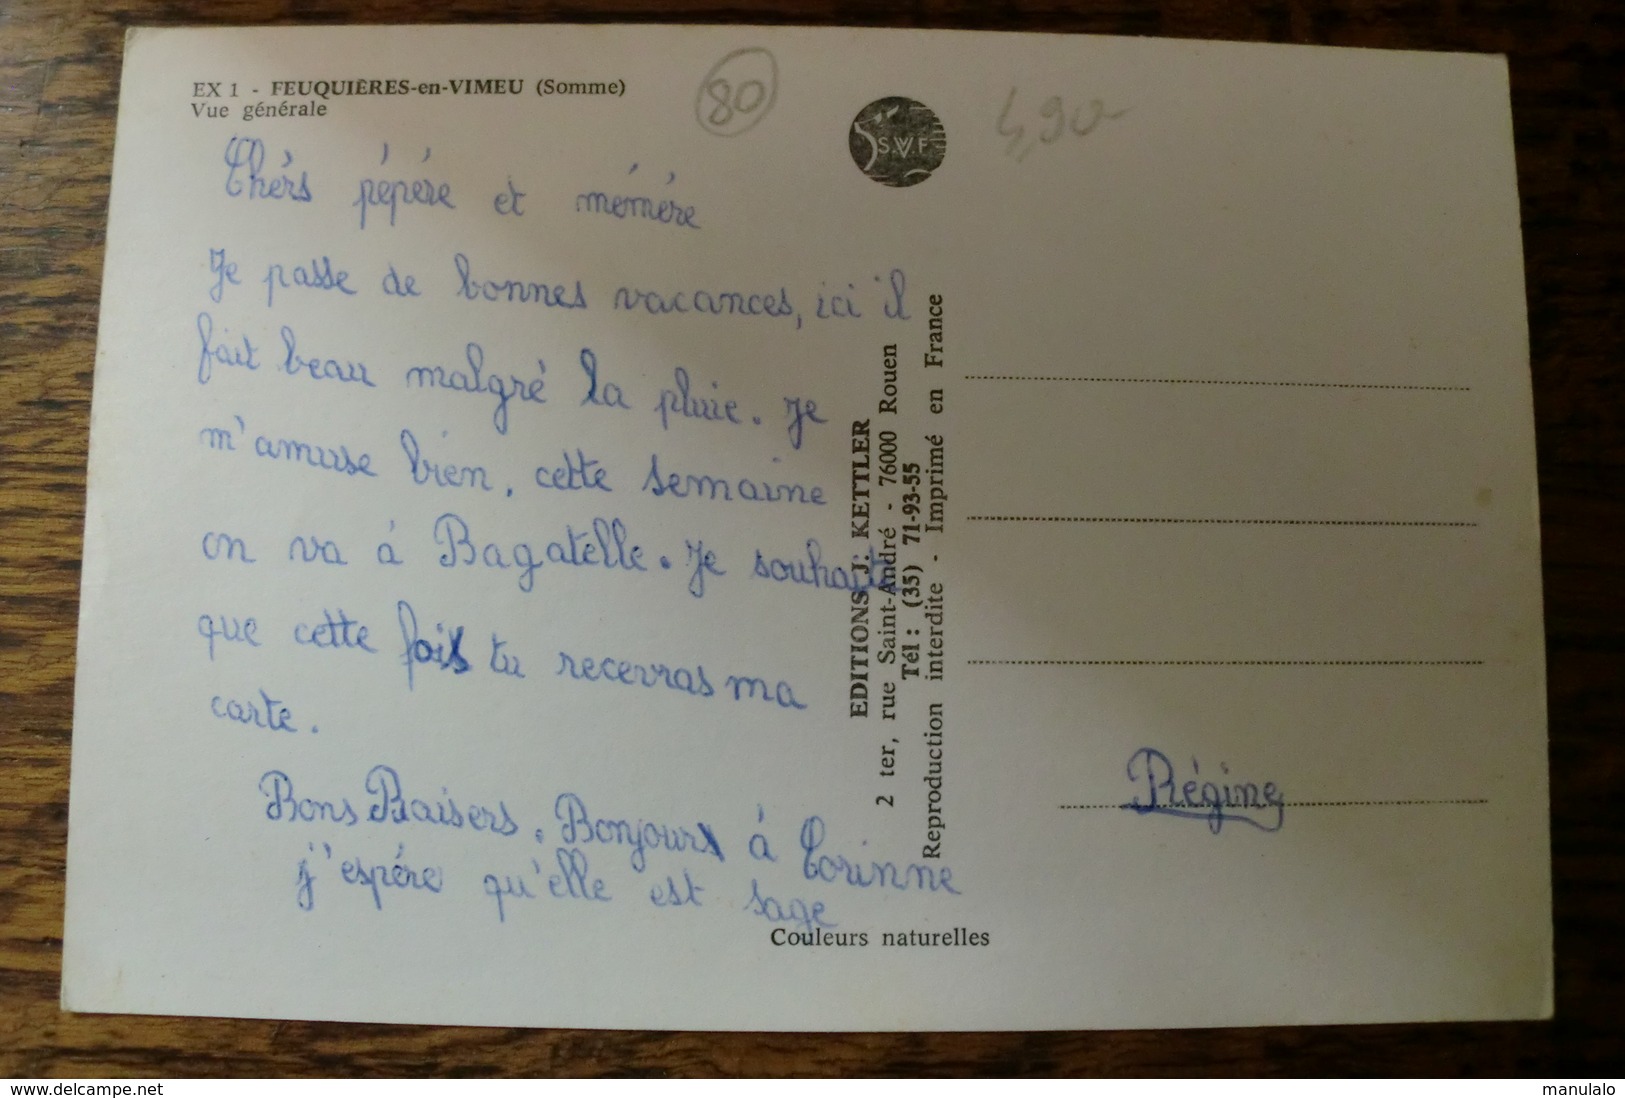 EX 1 - FEUQUIÈRES-en-VIMEU (Somme)
Vue générale
80
4,90-
S.V.F
Chèrs pépère et mémère
Je passe de bonnes vacances, ici il
fait beau malgré la pluie. Je
m'amuse bien, cette semaine
on va à Bagatelle. Je souhaite
que cette fois tu recevras ma
carte.
Bons Baisers. Bonjours à Corinne
j'espére qu'elle est sage
Régine
EDITIONS J. KETTLER
2 ter, rue Saint-André - 76000 Rouen
Tél : (35) 71-93-55
Reproduction interdite - Imprimé en France
Couleurs naturelles
www.delcampe.net
manulalo